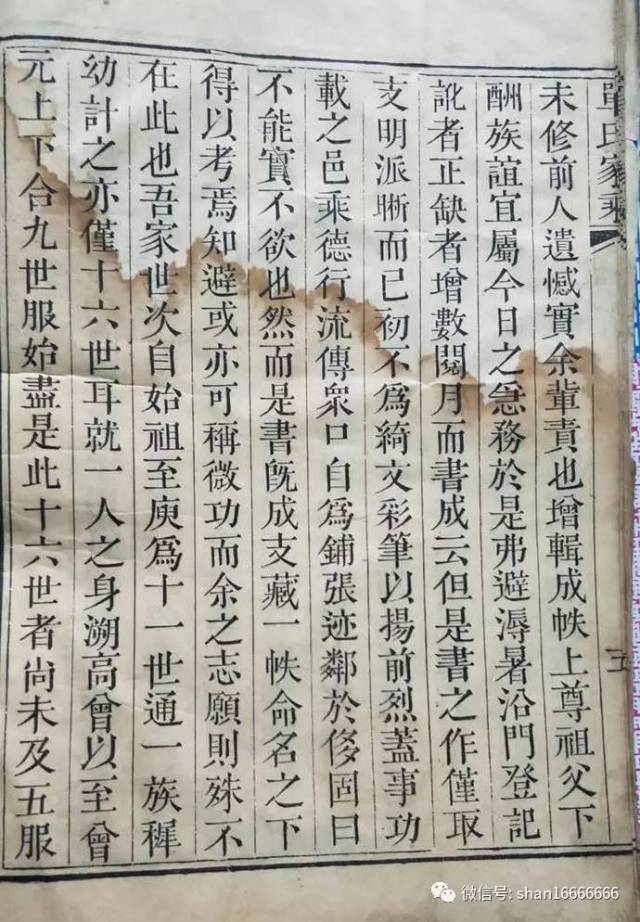 單氏家乘
未修前人遺憾實余輩責也增輯成帙上尊祖父下
酬族誼宜屬今日之急務於是弗避溽暑沿門登記
訛者正缺者增數閱月而書成云但是書之作僅取
支明派晰而已初不爲綺文彩筆以揚前烈蓋事功
載之邑乘德行流傳衆口自爲鋪張迹鄰於侈固曰
不能實不欲也然而是書旣成支藏一帙命名之下
得以考焉知避或亦可稱微功而余之志願則殊不
在此也吾家世次自始祖至庚爲十一世通一族穉
幼計之亦僅十六世耳就一人之身溯高曾以至曾
元上下合九世服始盡是此十六世者尚未及五服
五
微信号: shan16666666